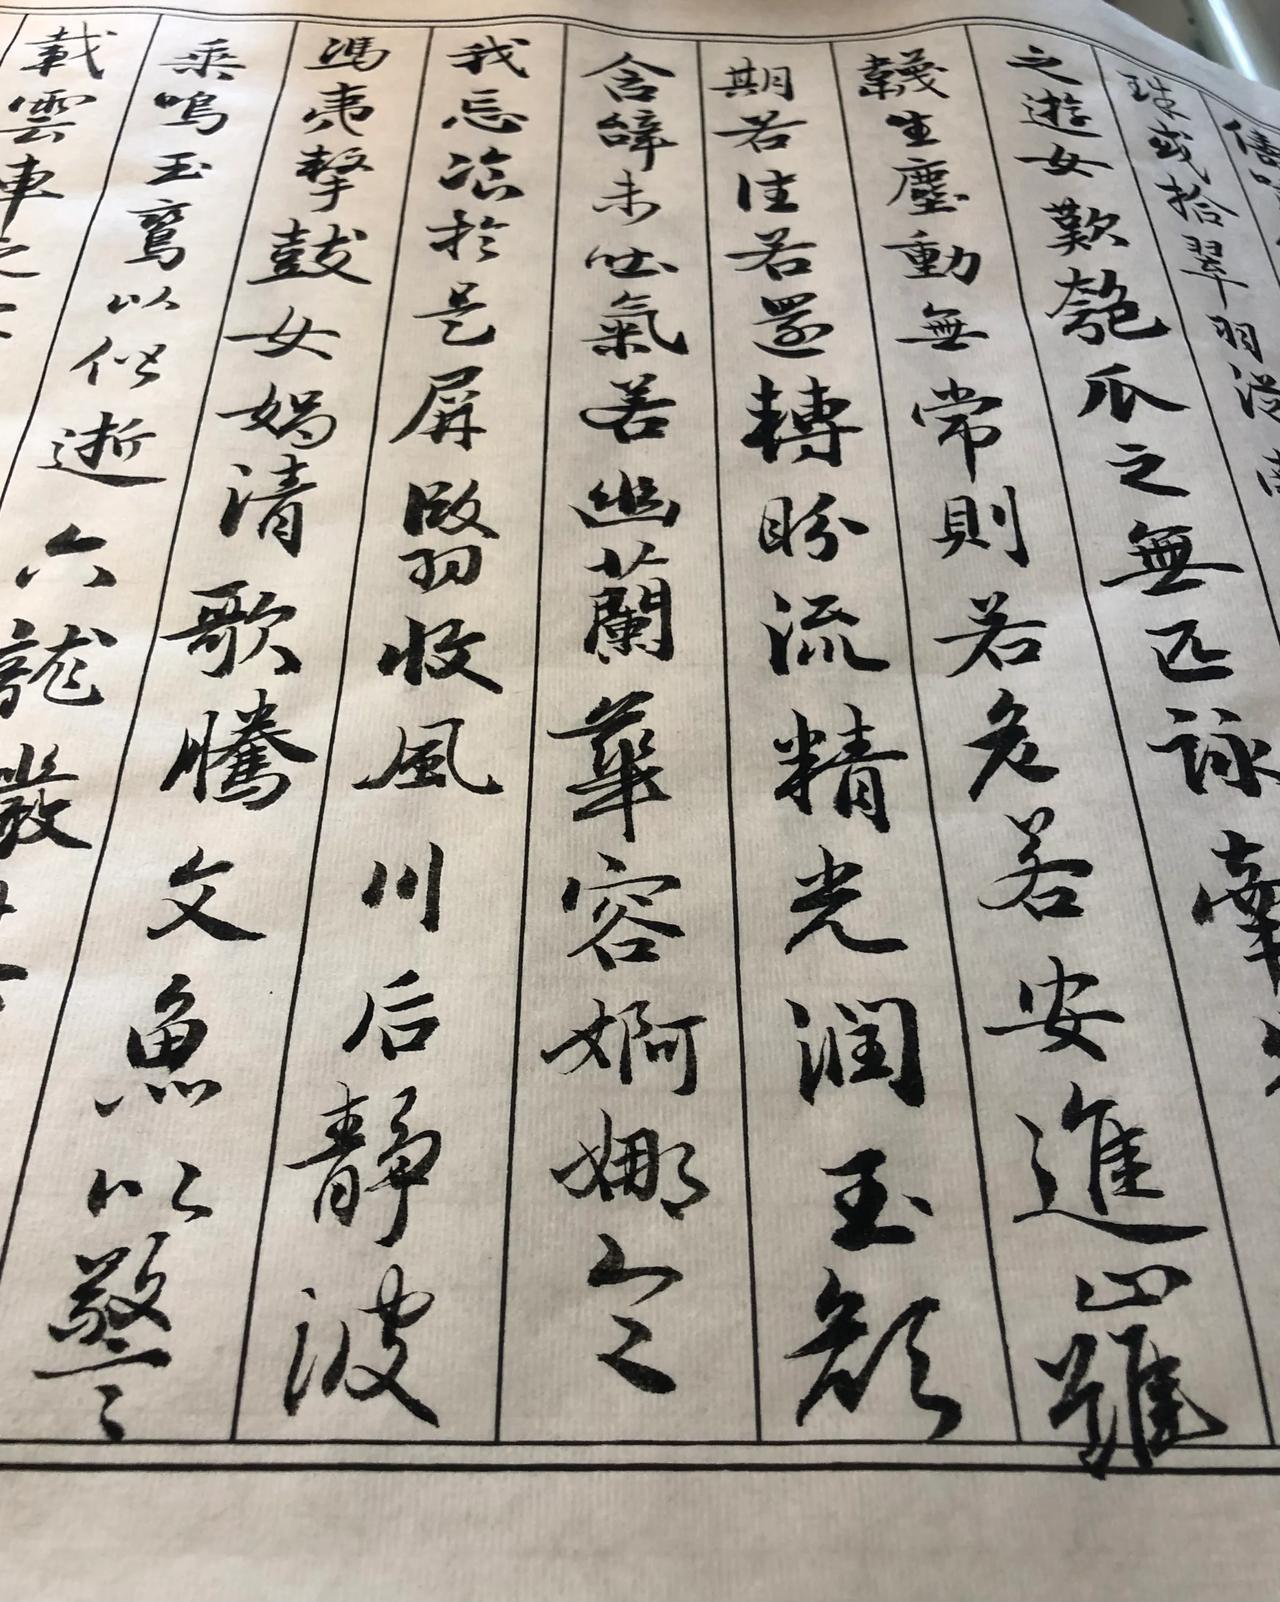 儔嘯
珠或拾翠羽從南
之遊女歎匏瓜之無匹詠牽牛
韈生塵動無常則若危若安進止難
期若往若還轉盼流精光潤玉顏
含辭未吐氣若幽蘭華容婀娜令
我忘飡於是屏翳收風川后靜波
馮夷擊鼓女媧清歌騰文魚以警
乘鳴玉鸞以偕逝六龍
載雲車之